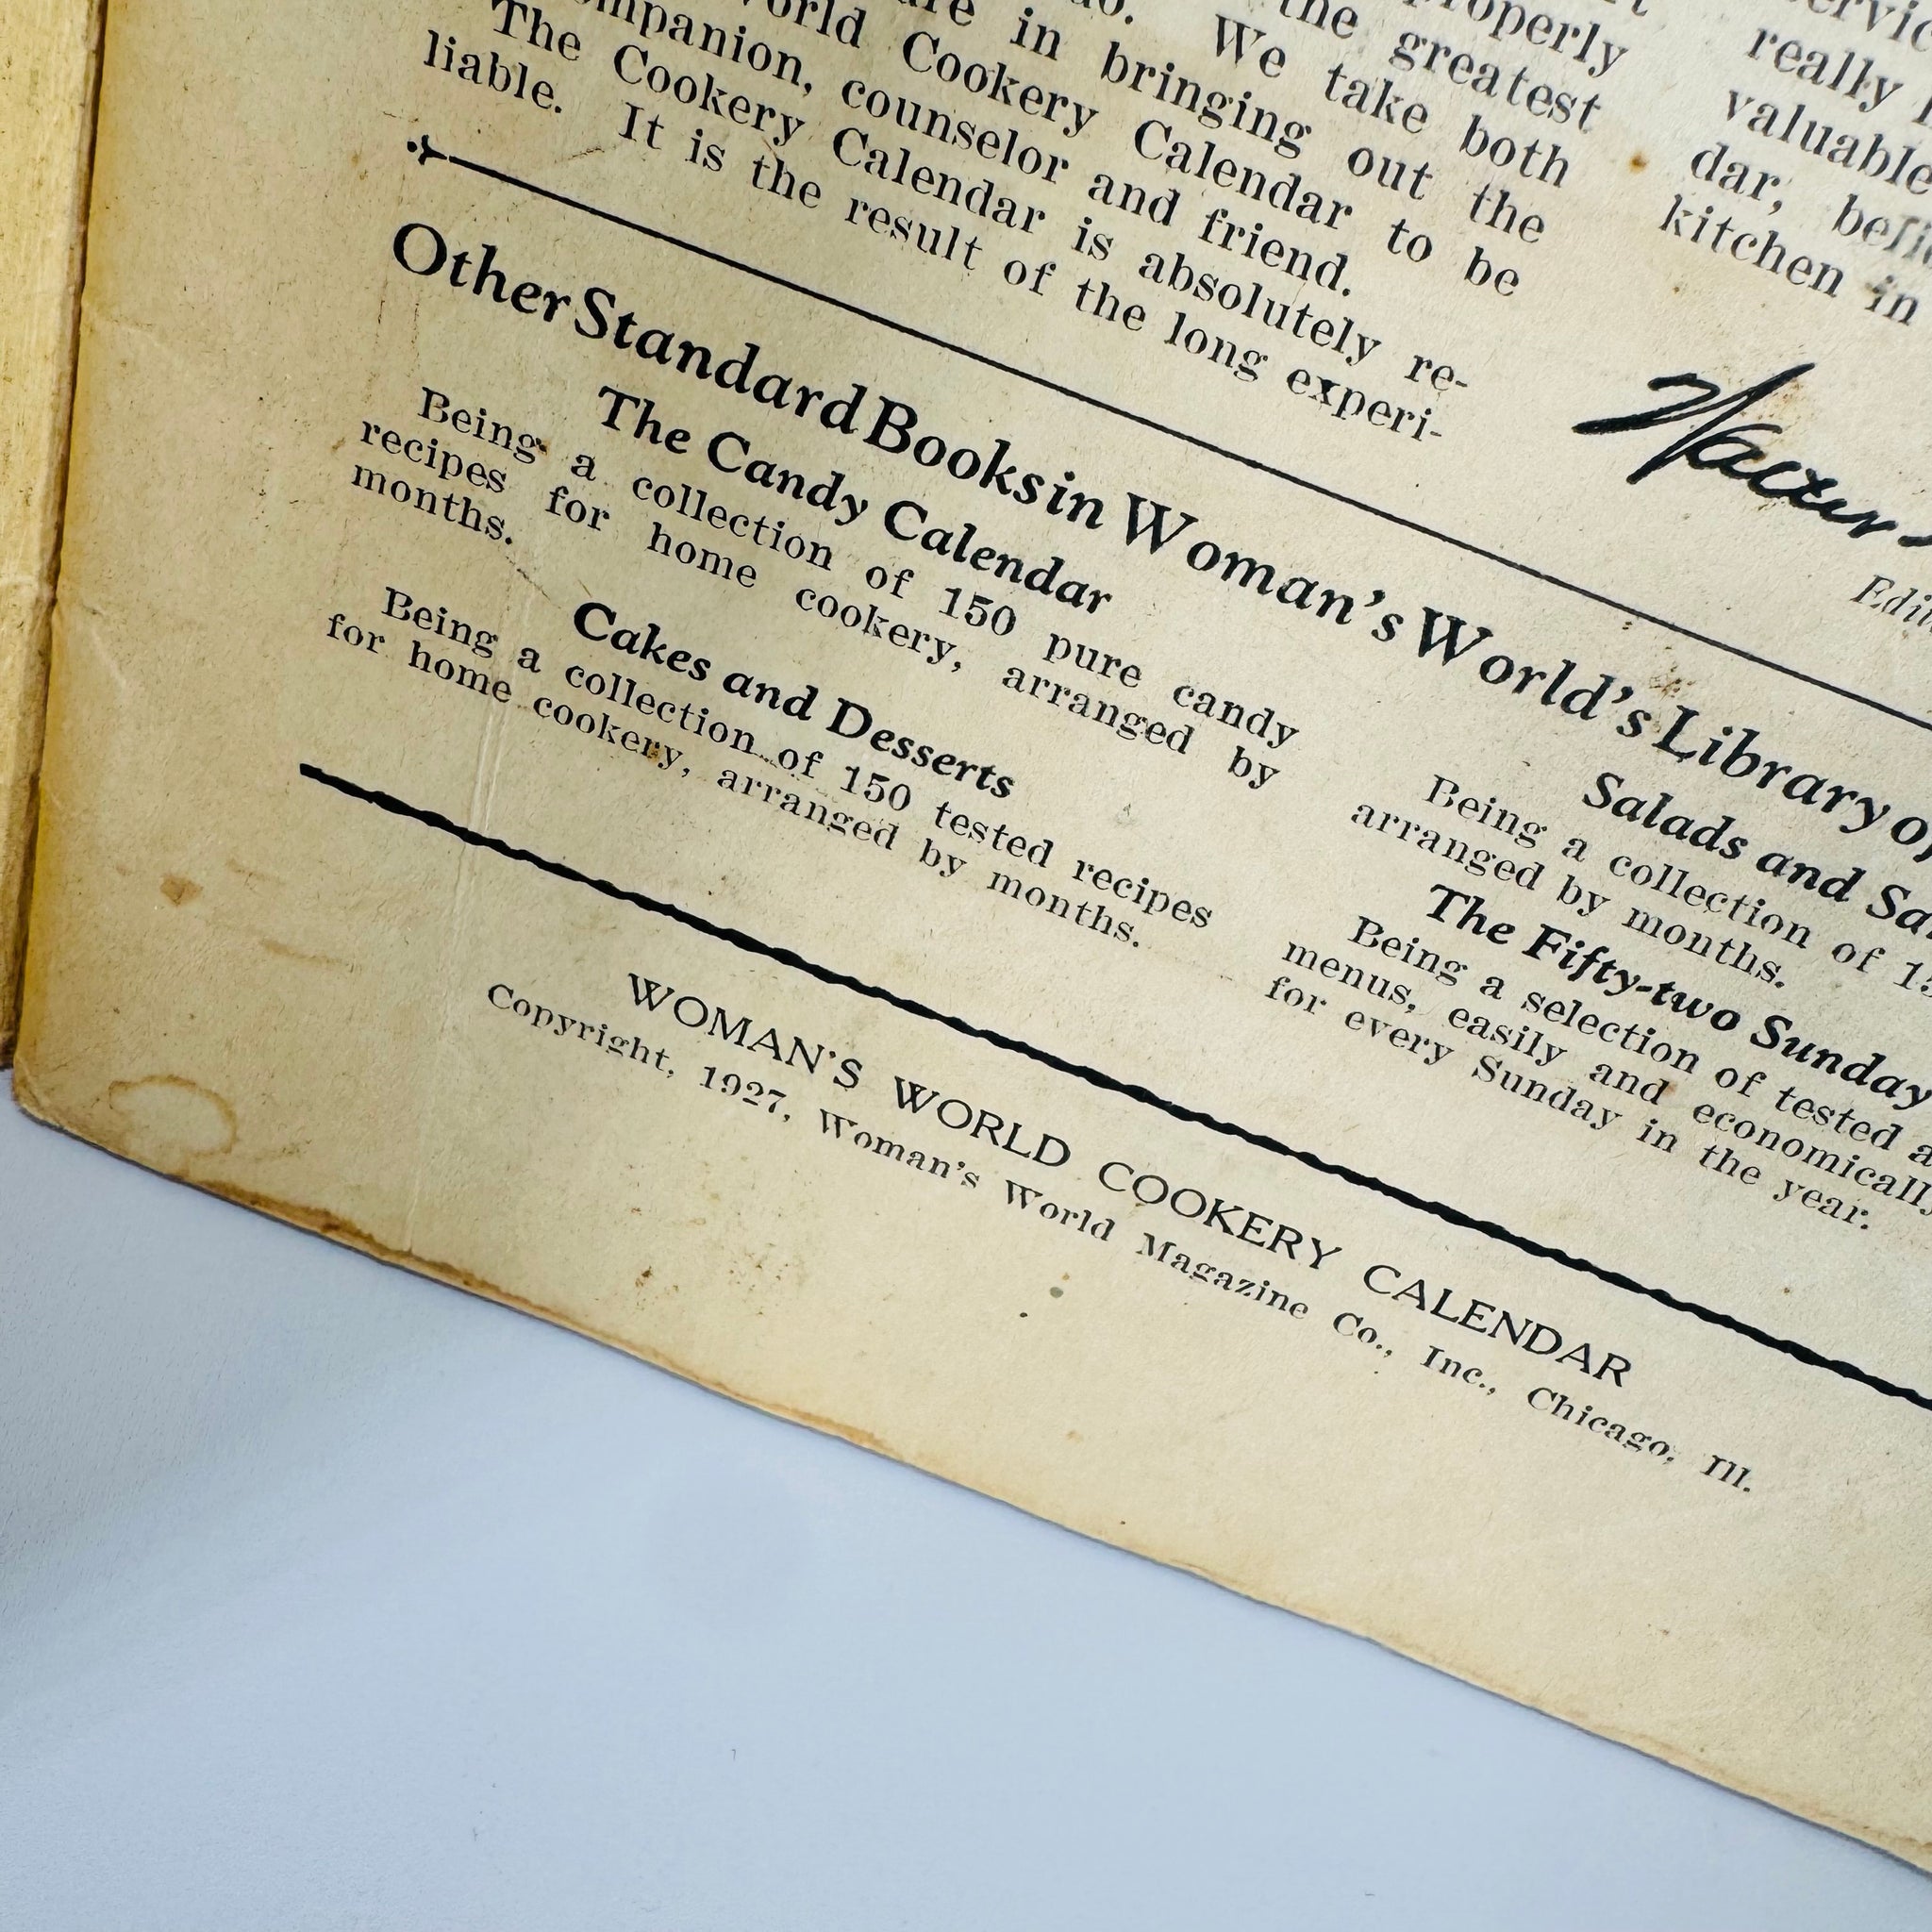 the greatest
We take both
in bringing out the
Cookery Calendar to be
companion, counselor and friend.
The Cookery Calendar is absolutely re-
liable. It is the result of the long experi-
properly
really
valuable
dar,
kitchen in
Other Standard Books in Woman's World's Library
The Candy Calendar
Being a collection of 150 pure candy
recipes for home cookery, arranged by
months.
Cakes and Desserts
Being a collection of 150 tested recipes
for home cookery, arranged by months.
Salads and
Being a collection of
arranged by months.
The Fifty-two Sunday
Being a selection of tested
menus, easily and economically
for every Sunday in the year.
WOMAN'S WORLD COOKERY CALENDAR
Copyright, 1927, Woman's World Magazine Co., Inc., Chicago, Ill.